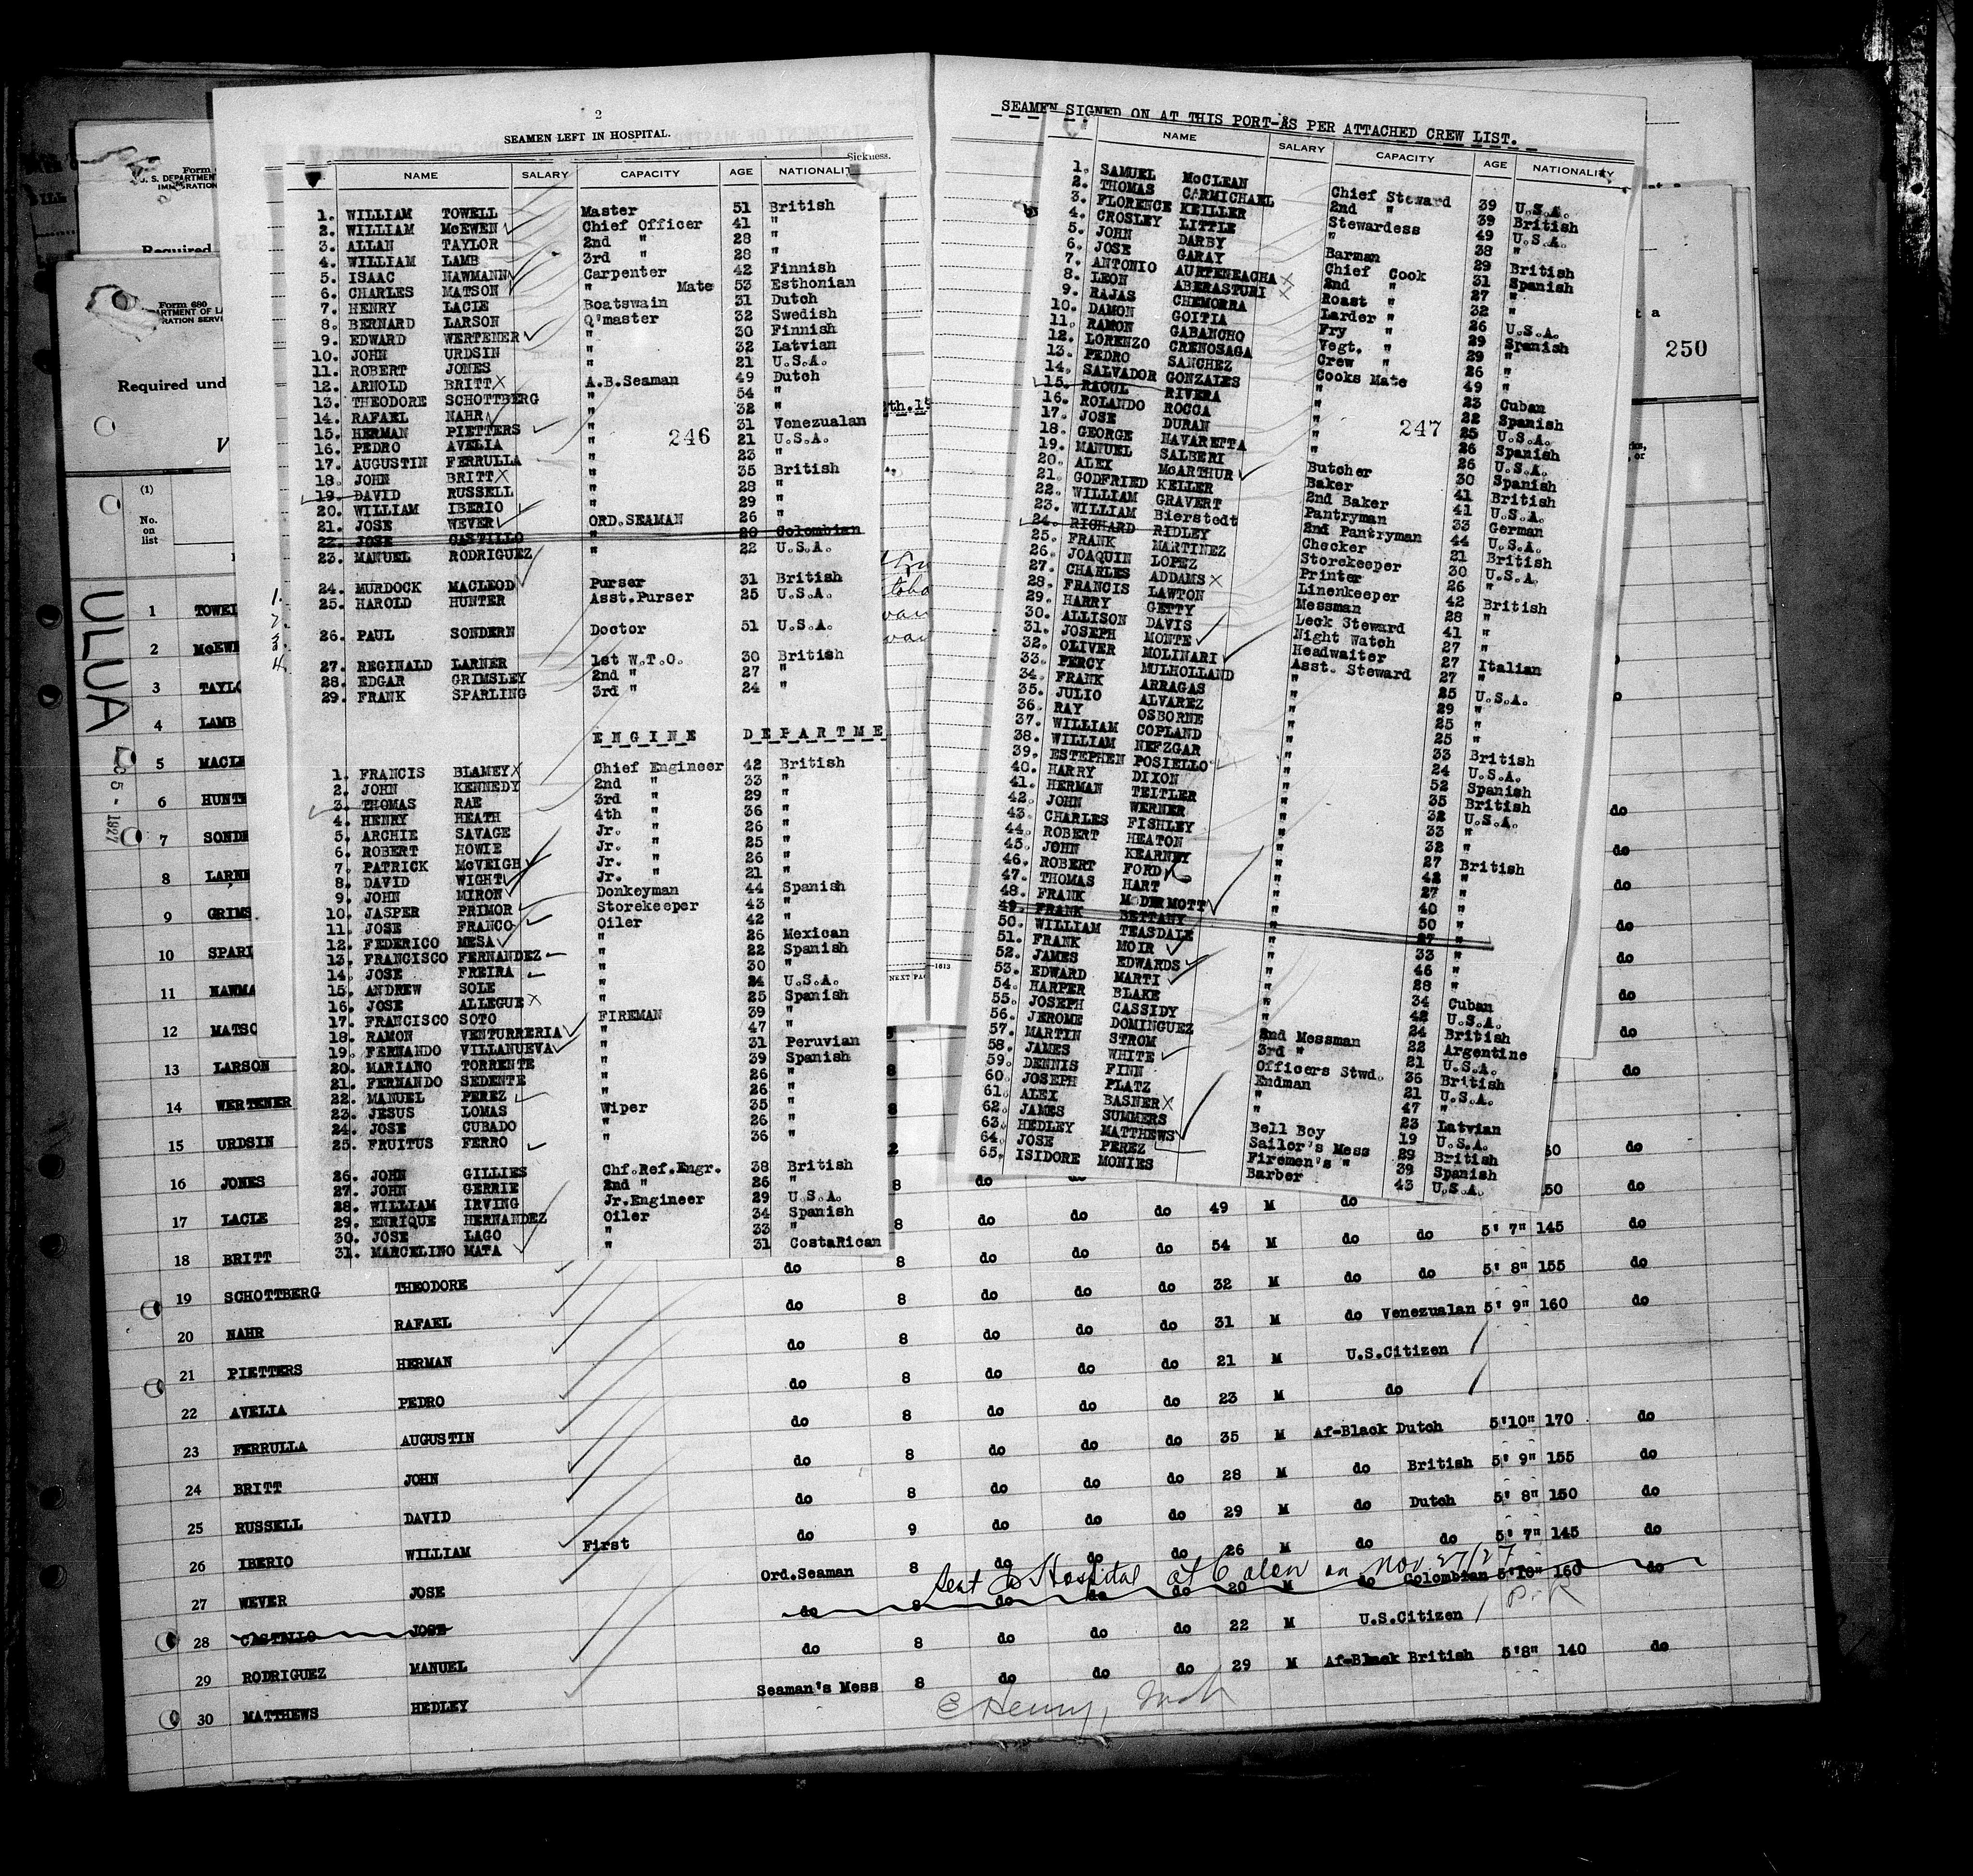 2
SEAMEN LEFT IN HOSPITAL.
Sickness.
NAME SALARY CAPACITY AGE NATIONALIT
1. WILLIAM TOWELL Master 51 British
2. WILLIAM McEWEN Chief Officer 41 "
3. ALLAN TAYLOR 2nd " 28 "
4. WILLIAM LAMB 3rd " 28 "
5. ISAAC NAWMANN Carpenter 42 Finnish
6. CHARLES MATSON " Mate 53 Esthonian
7. HENRY LACLE Boatswain 31 Dutch
8. BERNARD LARSON Q'master 32 Swedish
9. EDWARD WERTENER " 30 Finnish
10. JOHN URDSIN " 32 Latvian
11. ROBERT JONES " 21 U.S.A.
12. ARNOLD BRITT A.B.Seaman 49 Dutch
13. THEODORE SCHOTTBERG " 54 "
14. RAFAEL NAHR " 32 "
15. HERMAN PIETTERS " 31 Venezualan
16. PEDRO AVELIA " 21 U.S.A.
17. AUGUSTIN FERRULLA " 23 "
18. JOHN BRITT " 35 British
19. DAVID RUSSELL " 28 "
20. WILLIAM IBERIO " 29 "
21. JOSE WEVER ORD.SEAMAN 26 "
22. JOSE CASTILLO " 20 Colombian
23. MANUEL RODRIGUEZ " 22 U.S.A.
24. MURDOCK MACLEOD Purser 31 British
25. HAROLD HUNTER Asst.Purser 25 U.S.A.
26. PAUL SONDERN Doctor 51 U.S.A.
27. REGINALD LARNER 1st W.T.O. 30 British
28. EDGAR GRIMSLEY 2nd " 27 "
29. FRANK SPARLING 3rd " 24 "
246
ENGINE DEPARTME
1. FRANCIS BLAMEY Chief Engineer 42 British
2. JOHN KENNEDY 2nd " 33 "
3. THOMAS RAE 3rd " 29 "
4. HENRY HEATH 4th " 36 "
5. ARCHIE SAVAGE Jr. " 26 "
6. ROBERT HOWIE Jr. " 25 "
7. PATRICK McVEIGH Jr. " 26 "
8. DAVID WIGHT Jr. " 21 "
9. JOHN MIRON Donkeyman 44 Spanish
10. JASPER PRIMOR Storekeeper 43 "
11. JOSE FRANCO Oiler 42 "
12. FEDERICO MESA " 26 Mexican
13. FRANCISCO FERNANDEZ " 22 Spanish
14. JOSE FREIRA " 30 "
15. ANDREW SOLE " 24 U.S.A.
16. JOSE ALLEGUE " 25 Spanish
17. FRANCISCO SOTO FIREMAN 39 "
18. RAMON VENTURRERIA " 47 "
19. FERNANDO VILLANUEVA " 31 Peruvian
20. MARIANO TORRENTE " 39 Spanish
21. FERNANDO SEDENTE " 26 "
22. MANUEL PEREZ " 26 "
23. JESUS LOMAS Wiper 35 "
24. JOSE CUBADO " 26 "
25. FRUITUS FERRO " 36 "
26. JOHN GILLIES Chf.Ref.Engr. 38 British
27. JOHN GERRIE 2nd " 26 "
28. WILLIAM IRVING Jr.Engineer 29 U.S.A.
29. ENRIQUE HERNANDEZ Oiler 34 Spanish
30. JOSE LAGO " 33 "
31. MARCELINO MATA " 31 CostaRican
SEAMEN SIGNED ON AT THIS PORT-AS PER ATTACHED CREW LIST.
NAME SALARY CAPACITY AGE NATIONALITY
1. SAMUEL McCLEAN Chief Steward 39 U.S.A.
2. THOMAS CARMICHAEL 2nd " 39 British
3. FLORENCE KEILLER Stewardess 49 U.S.A.
4. CROSLEY LITTLE " 38 "
5. JOHN DARBY Barman 29 British
6. JOSE GARAY Chief Cook 31 Spanish
7. ANTONIO AURTENEACHA 2nd " 27 "
8. LEON ABERASTURI Roast " 32 "
9. RAJAS CHEMORRA Larder " 26 U.S.A.
10. DAMON GOITIA Fry " 29 Spanish
11. RAMON GABANCHO Vegt. " 29 "
12. LORENZO CRENOSAGA Crew " 26 "
13. PEDRO SANCHEZ Cooks Mate 49 "
14. SALVADOR GONZALES " 23 Cuban
15. RAOUL RIVERA " 22 Spanish
16. ROLANDO ROCCA " 25 U.S.A.
17. JOSE DURAN " 26 Spanish
18. GEORGE NAVARETTA " 26 U.S.A.
19. MANUEL SALBERI Butcher 30 Spanish
20. ALEX McARTHUR Baker 41 British
21. GODFRIED KELLER 2nd Baker 41 U.S.A.
22. WILLIAM GRAVERT Pantryman 33 German
23. WILLIAM Bierstedt 2nd Pantryman 44 U.S.A.
24. RICHARD RIDLEY Checker 21 British
25. FRANK MARTINEZ Storekeeper 30 U.S.A.
26. JOAQUIN LOPEZ Printer 26 "
27. CHARLES ADDAMS Linenkeeper 42 British
28. FRANCIS LAWTON Messman 28 "
29. HARRY GETTY Deck Steward 41 "
30. ALLISON DAVIS Night Watch 27 "
31. JOSEPH MONTE Headwaiter 27 Italian
32. OLIVER MOLINARI Asst. Steward 27 "
33. PERCY MULHOLLAND " 25 U.S.A.
34. FRANK ARRAGAS " 29 "
35. JULIO ALVAREZ " 25 "
36. RAY OSBORNE " 25 "
37. WILLIAM COPLAND " 33 British
38. WILLIAM NEFZGAR " 24 U.S.A.
39. ESTEPHEN POSIELLO " 52 Spanish
40. HARRY DIXON " 35 British
41. HERMAN TEITLER " 32 U.S.A.
42. JOHN WERNER " 33 "
43. CHARLES FISHLEY " 32 "
44. ROBERT HEATON " 27 British
45. JOHN KEARNEY " 42 "
46. ROBERT FORD " 27 "
47. THOMAS HART " 40 "
48. FRANK McDERMOTT " 50 "
49. FRANK BETTANY " 27 "
50. WILLIAM TEASDALE " 33 "
51. FRANK MOIR " 46 "
52. JAMES EDWARDS " 28 "
53. EDWARD MARTI " 34 Cuban
54. HARPER BLAKE " 42 U.S.A.
55. JOSEPH CASSIDY " 24 British
56. JEROME DOMINGUEZ 2nd Messman 22 Argentine
57. MARTIN STROM 3rd " 21 U.S.A.
58. JAMES WHITE Officers Stwd. 36 British
59. DENNIS FINN Endman 21 U.S.A.
60. JOSEPH PLATZ " 47 "
61. ALEX BASNER " 23 Latvian
62. JAMES SUMMERS Bell Boy 19 U.S.A.
63. HEDLEY MATTHEWS Sailor's Mess 29 British
64. JOSE PEREZ Firemen's " 39 Spanish
65. ISIDORE MONIES Barber 43 U.S.A.
247
250
Form 680
Required und
ULUA
5 - 1927
(1)
No. on list
1 TOWEL
2 McEWE
3 TAYLO
4 LAMB
5 MACLE
6 HUNTE
7 SONDE
8 LARNE
9 GRIMS
10 SPARL
11 NAWMA
12 MATSO
13 LARSON
14 WERTENER
15 URDSIN
16 JONES
17 LACLE
18 BRITT do 8 do do do 49 M do
19 SCHOTTBERG THEODORE do 8 do do do 54 M do do 5' 7" 145 do
20 NAHR RAFAEL do 8 do do do 32 M do do 5' 8" 155 do
21 PIETTERS HERMAN do 8 do do do 31 M do Venezualan 5' 9" 160 do
22 AVELIA PEDRO do 8 do do do 21 M U.S.Citizen
23 FERRULLA AUGUSTIN do 8 do do do 23 M do
24 BRITT JOHN do 8 do do do 35 M Af-Black Dutch 5'10" 170 do
25 RUSSELL DAVID do 8 do do do 28 M do British 5' 9" 155 do
26 IBERIO WILLIAM First do 9 do do do 29 M do Dutch 5' 8" 150 do
27 WEVER JOSE Ord.Seaman 8 do do do 26 M do do 5' 7" 145 do
Sent to Hospital at Colon on Nov 27/27
28 CASTELLO JOSE do 8 do do do 20 M do Colombian 5'10" 160 do
29 RODRIGUEZ MANUEL do 8 do do do 22 M U.S.Citizen
30 MATTHEWS HEDLEY Seaman's Mess 8 do do do 29 M Af-Black British 5'8" 140 do